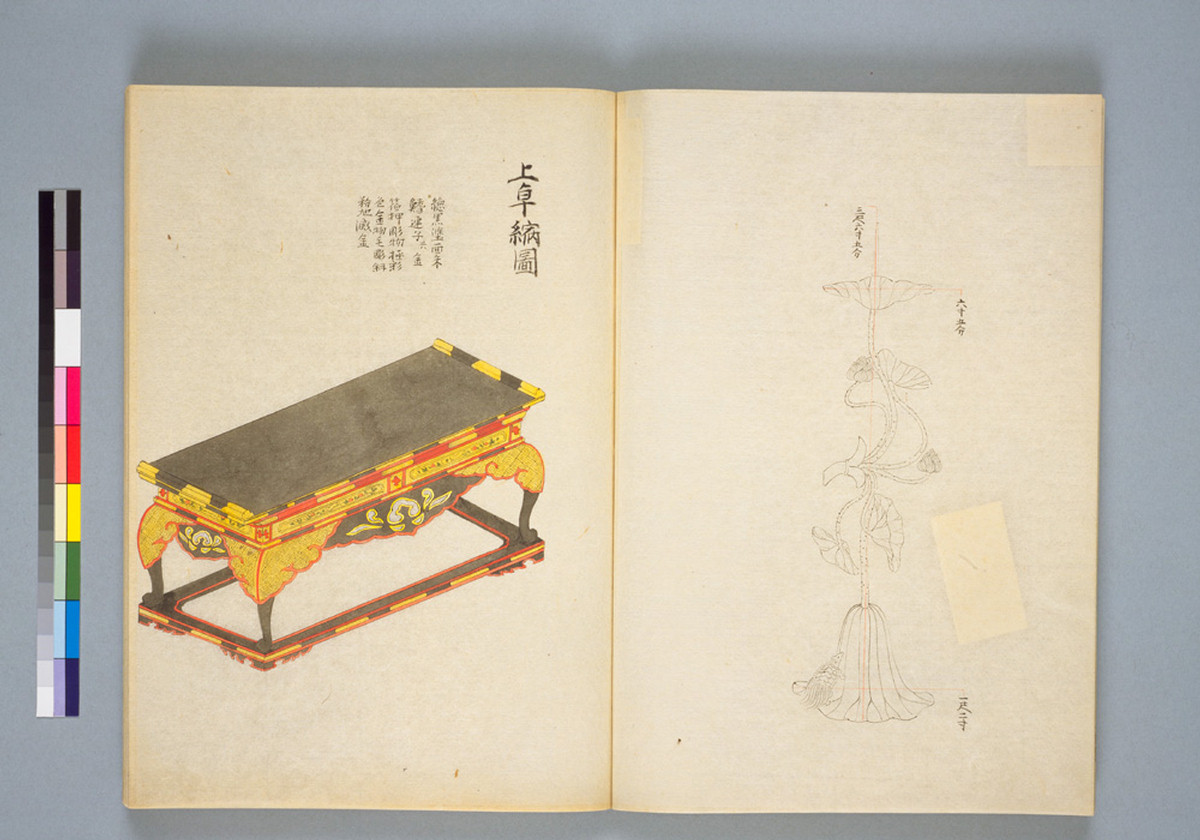 三尺六寸五分
六寸五分
一尺二寸
上卓縮圖
惣黒塗面朱
蓮子共金
筋押彫物極彩
色金物毛彫斜
粉地滅金